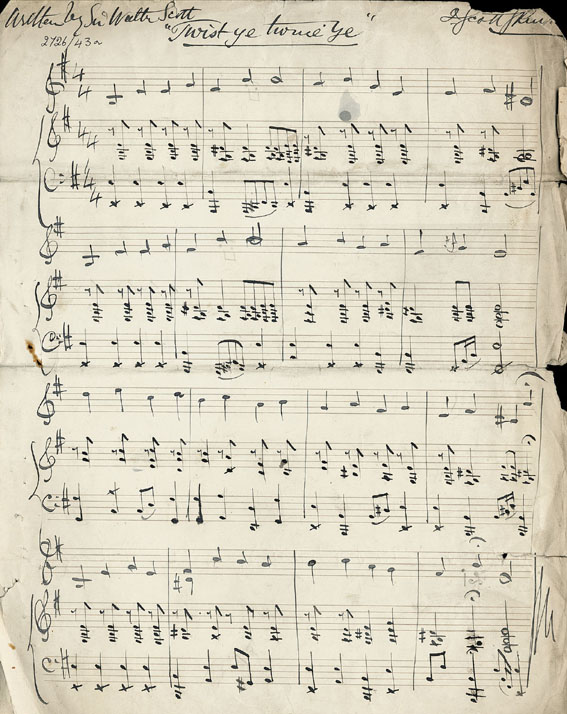 Written by Sir Walter Scott
"Twist ye twine Ye"
J. Scott Skin
2726/43a